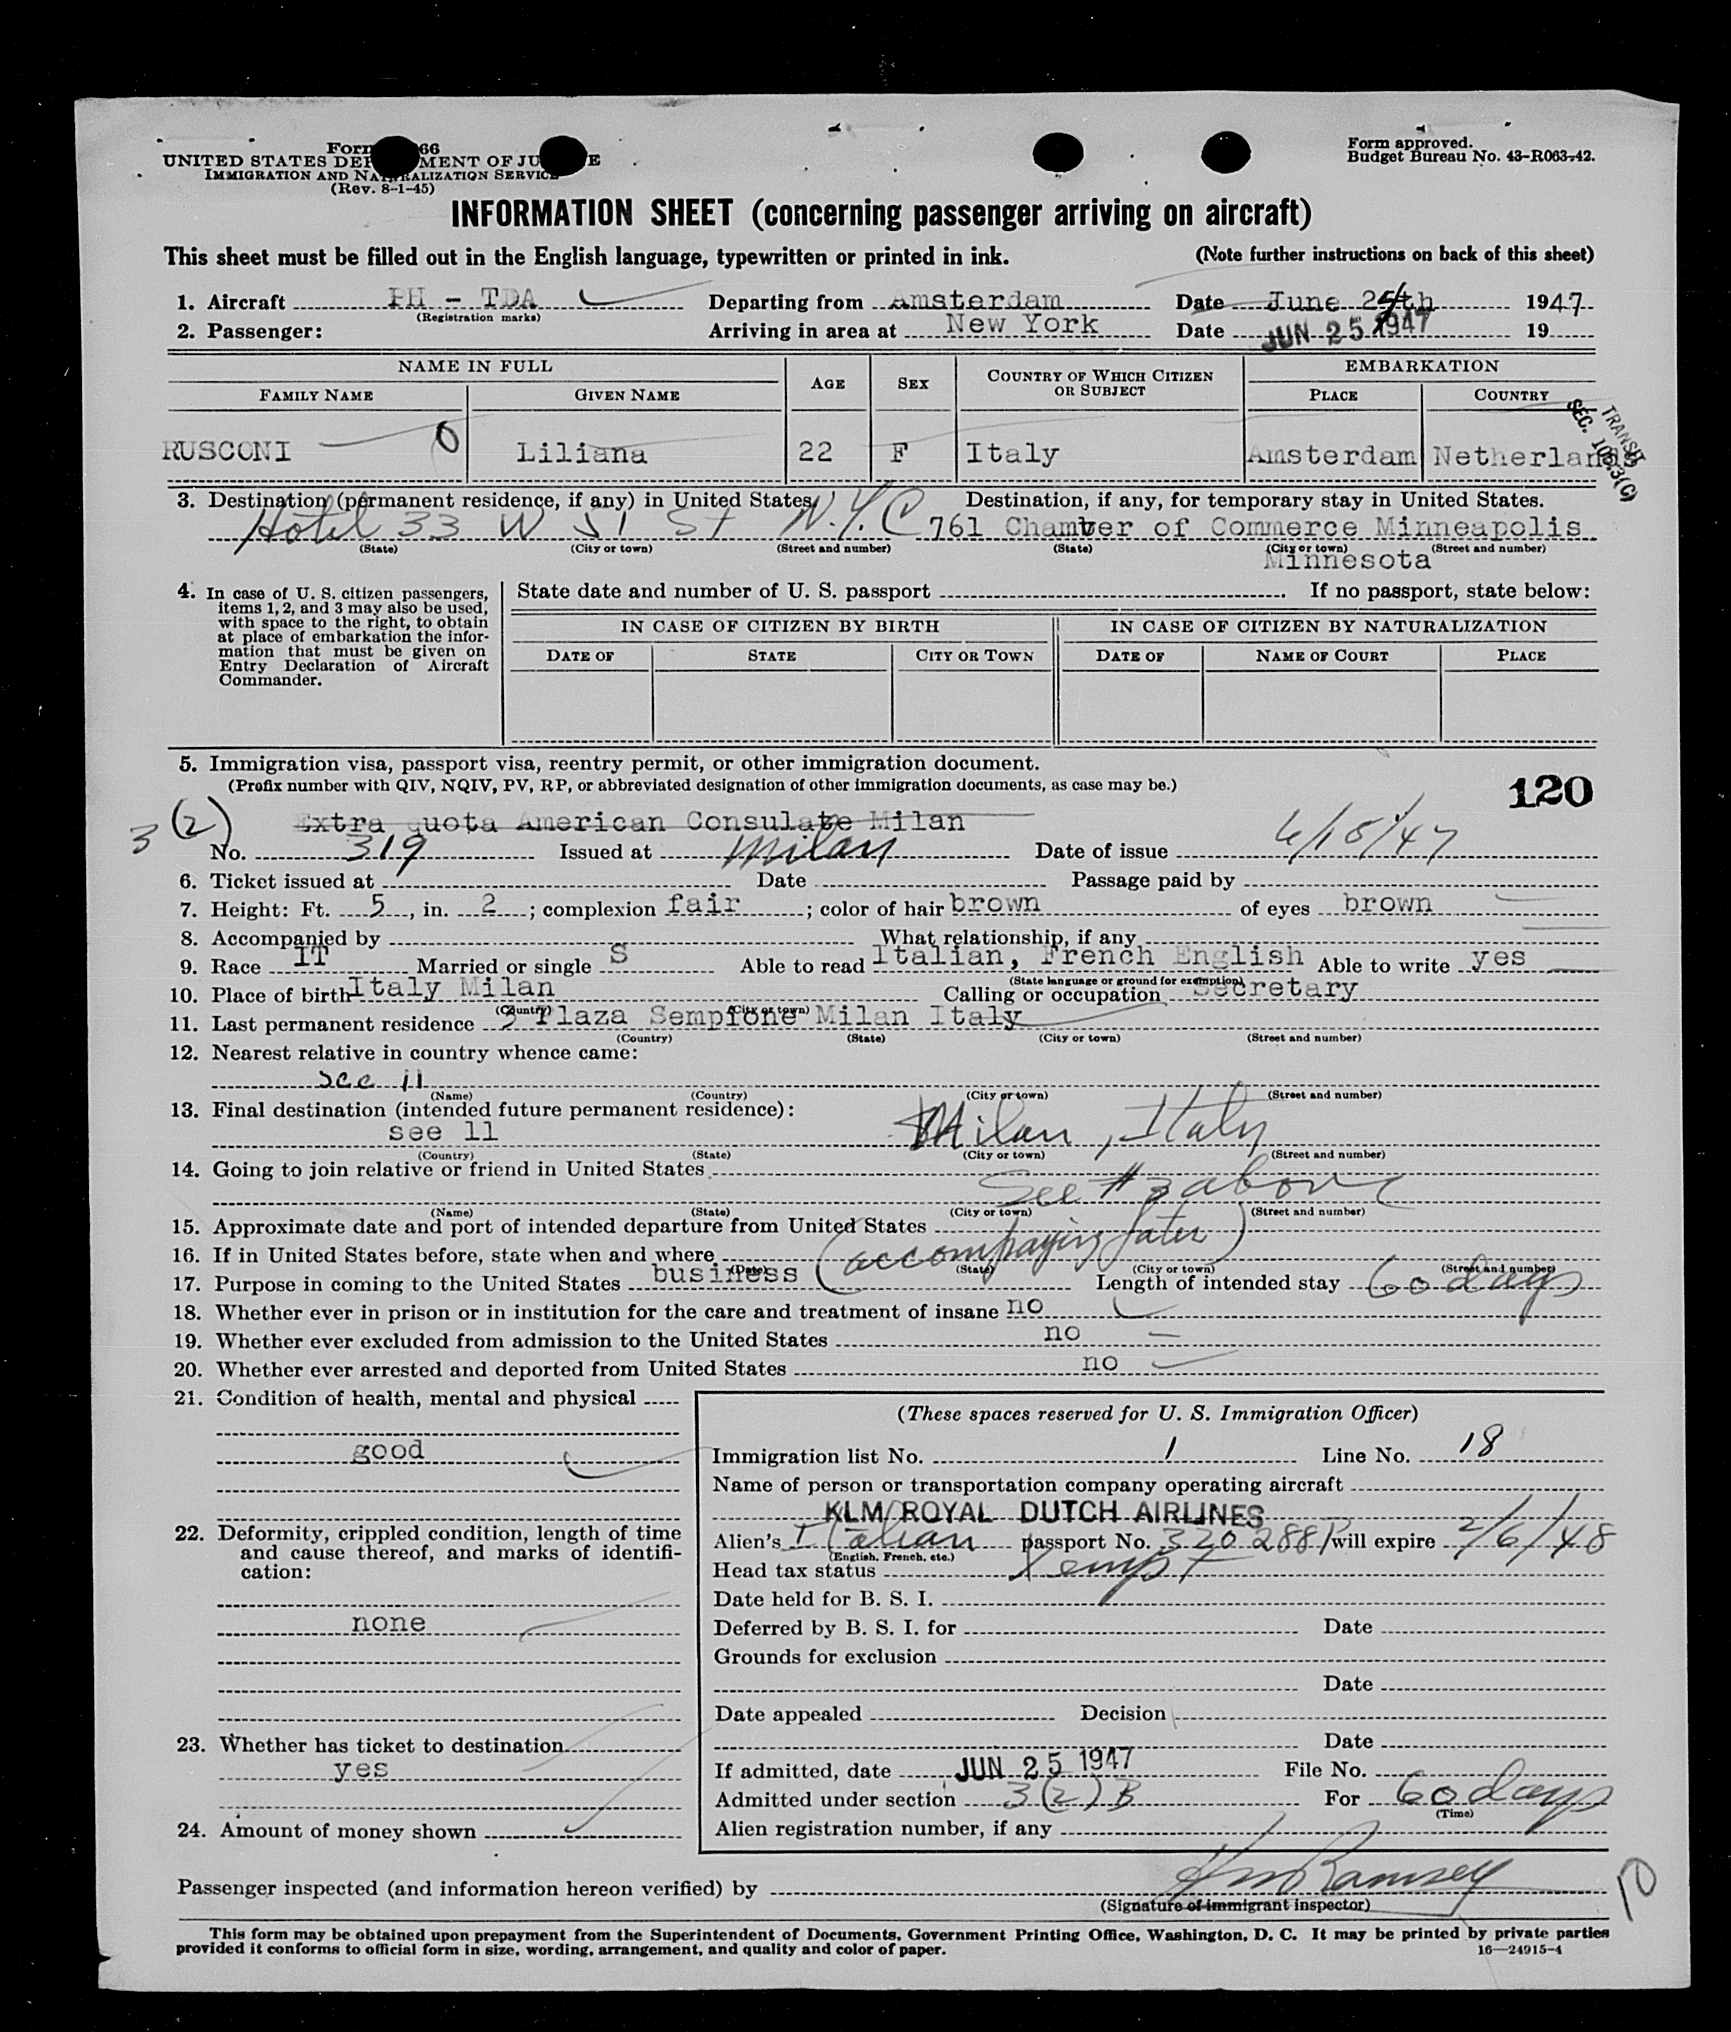 Form 66
UNITED STATES DEP MENT OF JU E
IMMIGRATION AND NATURALIZATION SERVICE
(Rev. 8-1-45)
Form approved.
Budget Bureau No. 43-R063-42.
INFORMATION SHEET (concerning passenger arriving on aircraft)
This sheet must be filled out in the English language, typewritten or printed in ink. (Note further instructions on back of this sheet)
1. Aircraft PH - TDA Departing from Amsterdam Date June 24th 1947
(Registration marks)
2. Passenger: Arriving in area at New York Date JUN 25 1947 19
NAME IN FULL
FAMILY NAME GIVEN NAME AGE SEX COUNTRY OF WHICH CITIZEN OR SUBJECT EMBARKATION
PLACE COUNTRY
RUSCONI 0 Liliana 22 F Italy Amsterdam Netherlands
TRANSIT
SEC. 103.3(C)
3. Destination (permanent residence, if any) in United States Destination, if any, for temporary stay in United States.
Hotel 33 W 51 St N.Y.C 761 Chamber of Commerce Minneapolis
(State) (City or town) (Street and number) (State) (City or town) (Street and number)
Minnesota
4. In case of U. S. citizen passengers, items 1, 2, and 3 may also be used, with space to the right, to obtain at place of embarkation the information that must be given on Entry Declaration of Aircraft Commander.
State date and number of U. S. passport If no passport, state below:
IN CASE OF CITIZEN BY BIRTH IN CASE OF CITIZEN BY NATURALIZATION
DATE OF STATE CITY OR TOWN DATE OF NAME OF COURT PLACE
5. Immigration visa, passport visa, reentry permit, or other immigration document.
(Prefix number with QIV, NQIV, PV, RP, or abbreviated designation of other immigration documents, as case may be.)
120
3 (2) Extra quota American Consulate Milan
No. 319 Issued at Milan Date of issue 6/15/47
6. Ticket issued at Date Passage paid by
7. Height: Ft. 5, in. 2; complexion fair; color of hair brown of eyes brown
8. Accompanied by What relationship, if any
9. Race IT Married or single S Able to read Italian, French English Able to write yes
(State language or ground for exemption)
10. Place of birth Italy Milan Calling or occupation Secretary
(Country) (City or town)
11. Last permanent residence 3 Plaza Sempione Milan Italy
(Country) (State) (City or town) (Street and number)
12. Nearest relative in country whence came:
see 11
(Name) (Country) (City or town) (Street and number)
13. Final destination (intended future permanent residence):
see 11 Milan, Italy
(Country) (State) (City or town) (Street and number)
14. Going to join relative or friend in United States
See #3 above
(Name) (State) (City or town) (Street and number)
15. Approximate date and port of intended departure from United States
16. If in United States before, state when and where
(Date) (State) (City or town) (Street and number)
17. Purpose in coming to the United States business (accompaying fater) Length of intended stay 60 days
18. Whether ever in prison or in institution for the care and treatment of insane no
19. Whether ever excluded from admission to the United States no
20. Whether ever arrested and deported from United States no
21. Condition of health, mental and physical
good
22. Deformity, crippled condition, length of time and cause thereof, and marks of identification:
none
23. Whether has ticket to destination
yes
24. Amount of money shown
(These spaces reserved for U. S. Immigration Officer)
Immigration list No. 1 Line No. 18
Name of person or transportation company operating aircraft
KLM/ROYAL DUTCH AIRLINES
Alien's Italian passport No. 320288P will expire 2/6/48
(English, French, etc.)
Head tax status Xempt
Date held for B. S. I.
Deferred by B. S. I. for Date
Grounds for exclusion
Date
Date appealed Decision
Date
If admitted, date JUN 25 1947 File No.
Admitted under section 3(2)B For 60 days
(Time)
Alien registration number, if any
Passenger inspected (and information hereon verified) by Ramsey
(Signature of immigrant inspector)
10
This form may be obtained upon prepayment from the Superintendent of Documents, Government Printing Office, Washington, D. C. It may be printed by private parties
provided it conforms to official form in size, wording, arrangement, and quality and color of paper.
16—24915-4